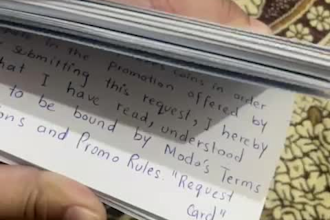 in the
Coins in order
Promotion offered by
submitting this request, I hereby
that I have read, understood
to be bound by Modo's Terms
and Promo Rules. "Request
Card"